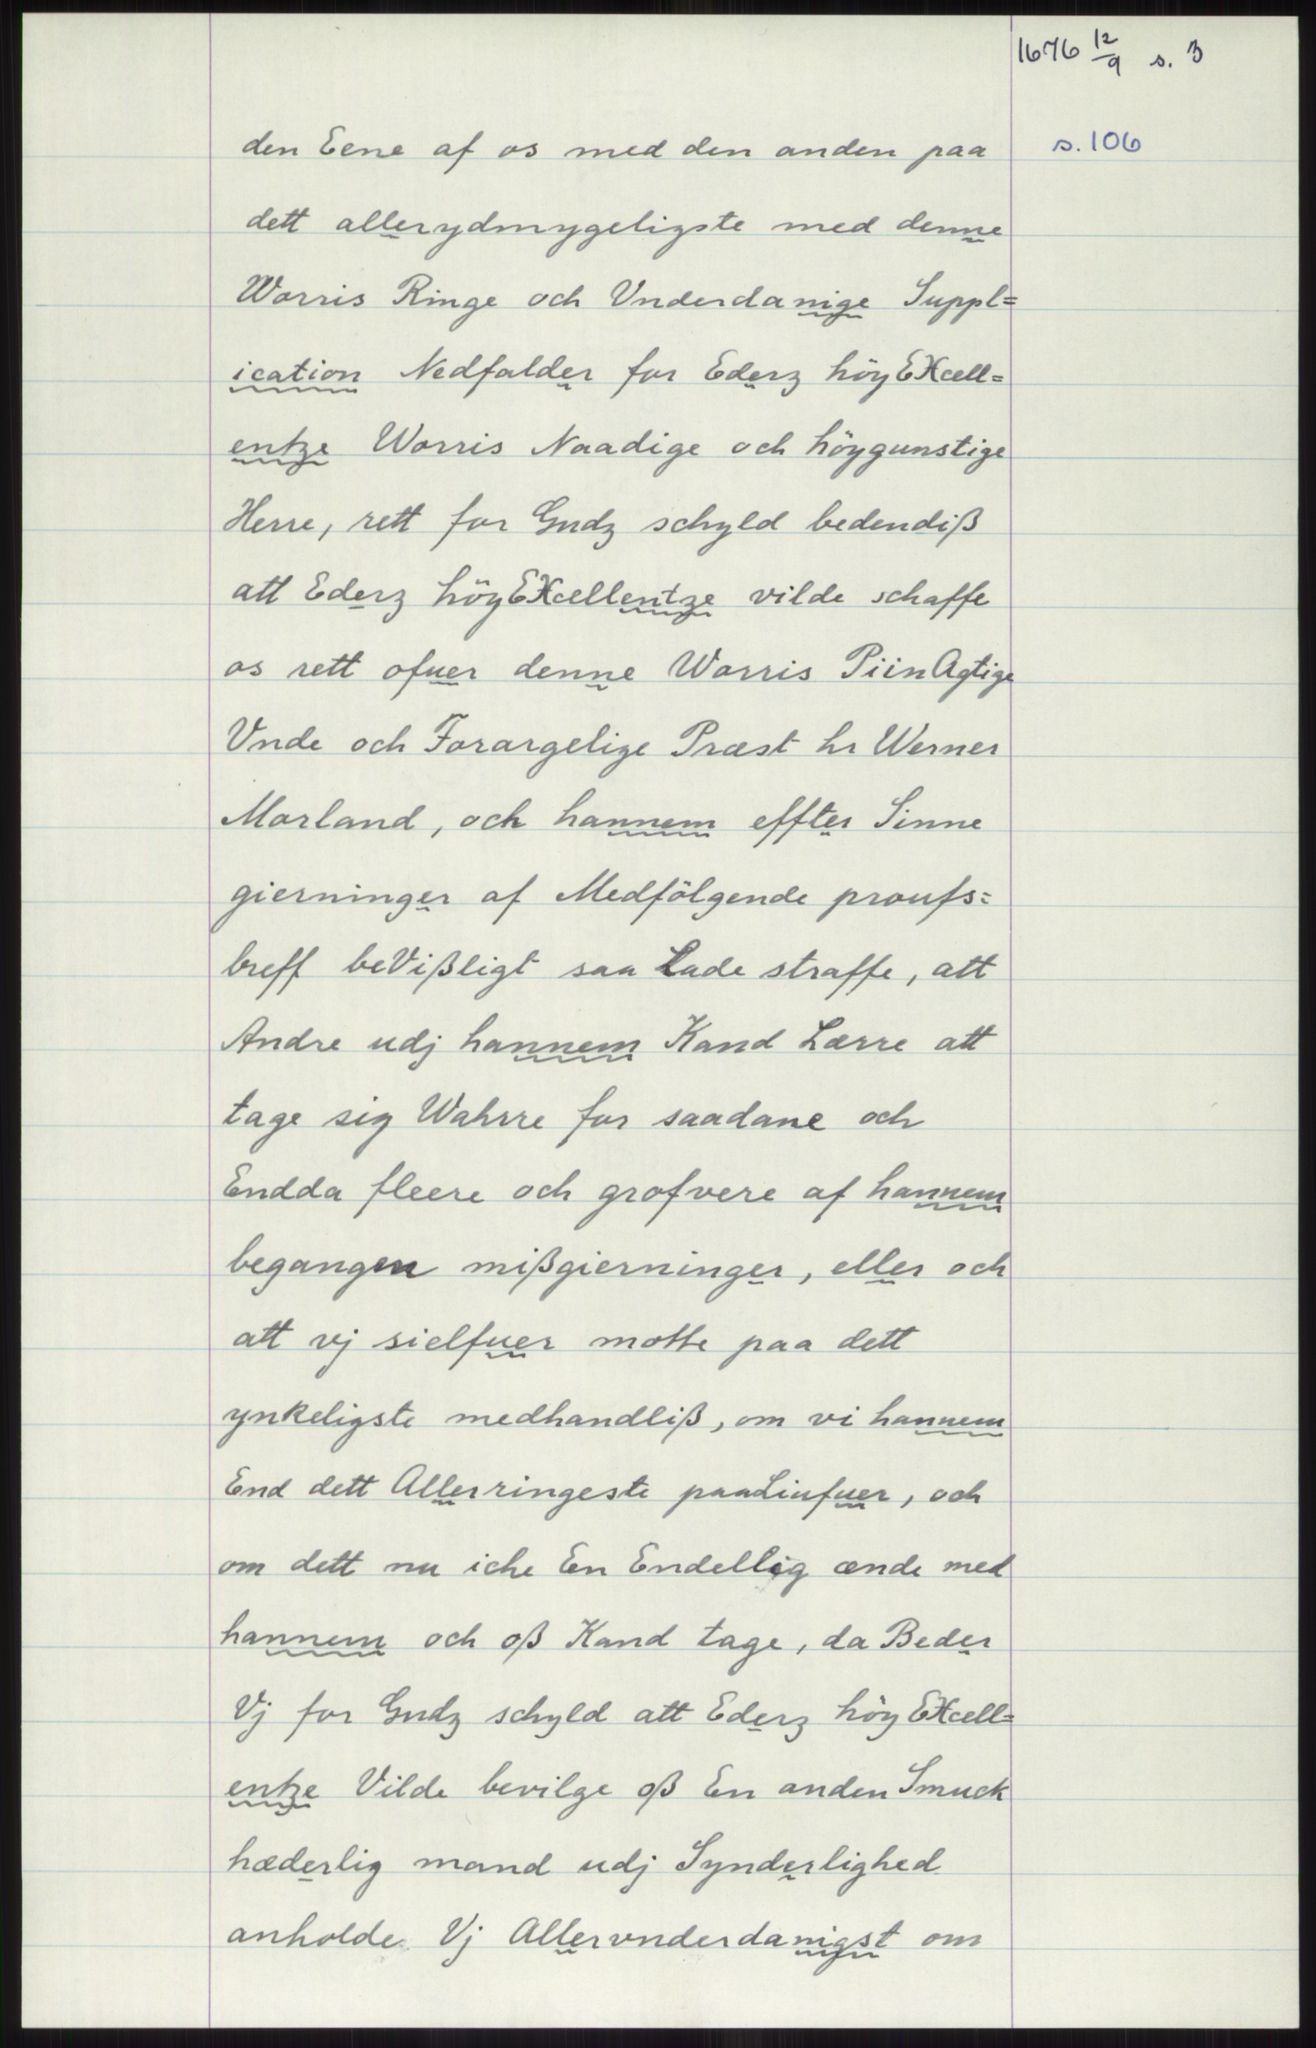 1676 12/9 s. 3
s. 106
den Eene af os med den anden paa
dett allerydmygeligste med denne
Worris Ringe och Vnderdanige Suppl=
ication Nedfalder for Ederz höyEXcell=
entze Worris Naadige och höygunstige
Herre, rett for Gudz schyld bedendiß
att Ederz höyEXcellentze vilde schaffe
os rett ofuer denne Worris PiinAgtige
Vnde och Forargelige Præst hr Werner
Morland, och hannem effter Sinne
gierninger af Medfölgende proufs=
breff beVißligt saa Lade straffe, att
Andre udj hannem Kand Lærre att
tage sig Wahrre for saadane och
Endda fleere och grofvere af hannem
begangen mißgierninger, eller och
att vj sielfuer motte paa dett
ynkeligste medhandliß, om vi hannem
End dett Allerringeste paaLiufuer, och
om dett nu iche En Endellig ænde med
hannem och oß Kand tage, da Beder
Vj for Gudz schyld att Ederz höyEXcell=
entze Vilde bevilge oß En anden Smuck
hæderlig mand udj Synderlighed
anholde Vj Allervnderdanigst om